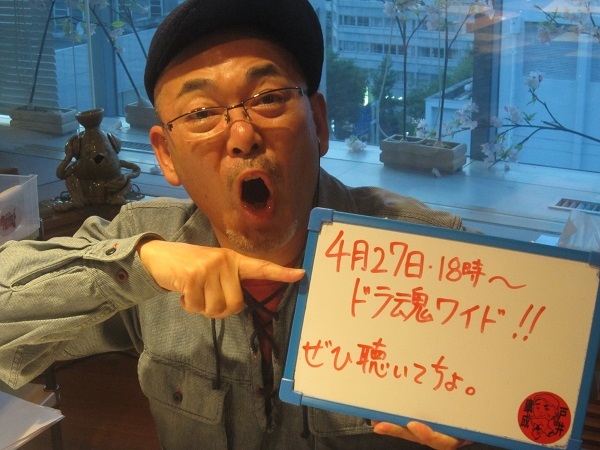 4月27日・18時〜
ドラ魂ワイド!!
ぜひ聴いてちょ。